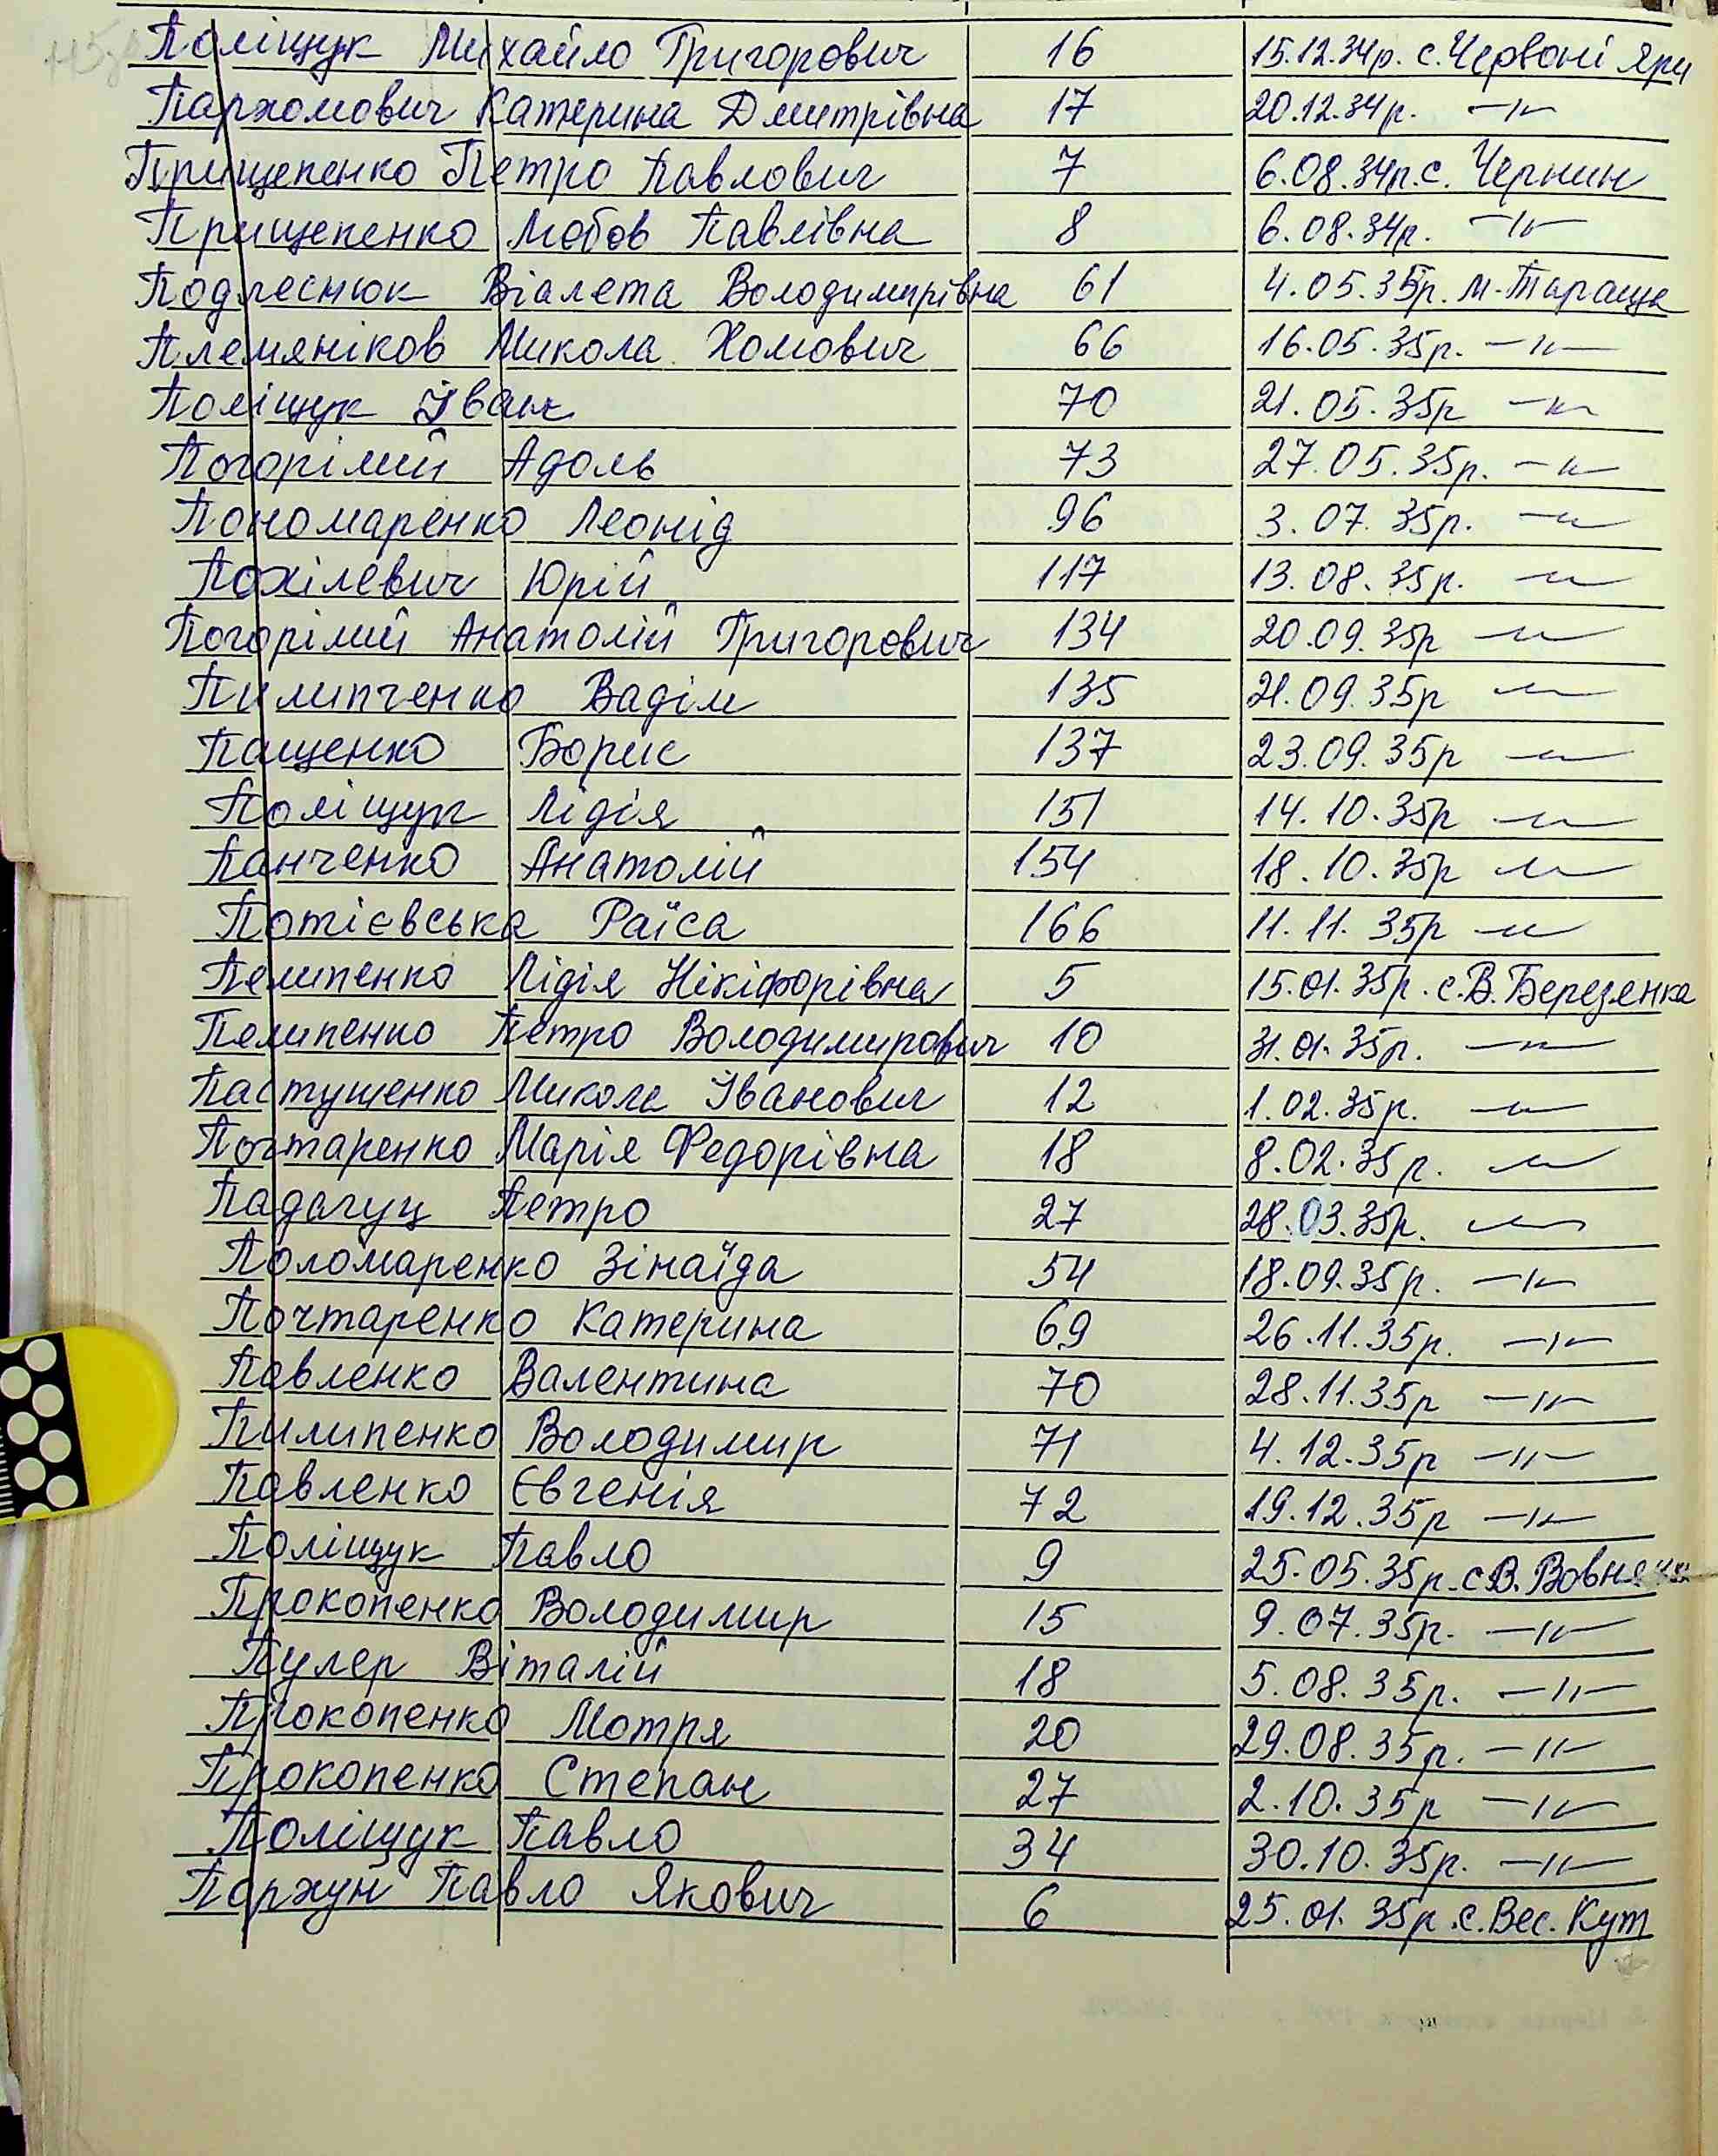 Поліщук Михайло Григорович 16 15.12.34р. с. Червоні Яри
Пархомович Катерина Дмитрівна 17 20.12.34р. —"—
Прищепенко Петро Павлович 7 6.08.34р. с. Чернин
Прищепенко Любов Павлівна 8 6.08.34р. —"—
Подлеснюк Віалета Володимирівна 61 4.05.35р. м. Тараща
Племяніков Микола Хомович 66 16.05.35р. —"—
Поліщук Іван 70 21.05.35р —"—
Погорілий Адоль 73 27.05.35р. —"—
Пономаренко Леонід 96 3.07.35р. —"—
Похілевич Юрій 117 13.08.35р. —"—
Погорілий Анатолій Григорович 134 20.09.35р —"—
Пилипченко Вадім 135 21.09.35р —"—
Пащенко Борис 137 23.09.35р —"—
Поліщук Лідія 151 14.10.35р —"—
Панченко Анатолій 154 18.10.35р —"—
Потієвська Раїса 166 11.11.35р —"—
Пелипенко Лідія Нікіфорівна 5 15.01.35р. с. В. Березянка
Пелипенко Петро Володимирович 10 31.01.35р. —"—
Пастушенко Микола Іванович 12 1.02.35р. —"—
Почтаренко Марія Федорівна 18 8.02.35р. —"—
Падагуц Петро 27 28.03.35р. —"—
Поломаренко Зінаїда 54 18.09.35р. —"—
Почтаренко Катерина 69 26.11.35р. —"—
Павленко Валентина 70 28.11.35р —"—
Пилипенко Володимир 71 4.12.35р —"—
Павленко Євгенія 72 19.12.35р —"—
Поліщук Павло 9 25.05.35р. с. В.
Прокопенко Володимир 15 9.07.35р. —"—
Пулер Віталій 18 5.08.35р. —"—
Прокопенко Мотря 20 29.08.35р. —"—
Прокопенко Степан 27 2.10.35р —"—
Поліщук Павло 34 30.10.35р. —"—
Пархун Павло Якович 6 25.01.35р. с. Вес. Кут